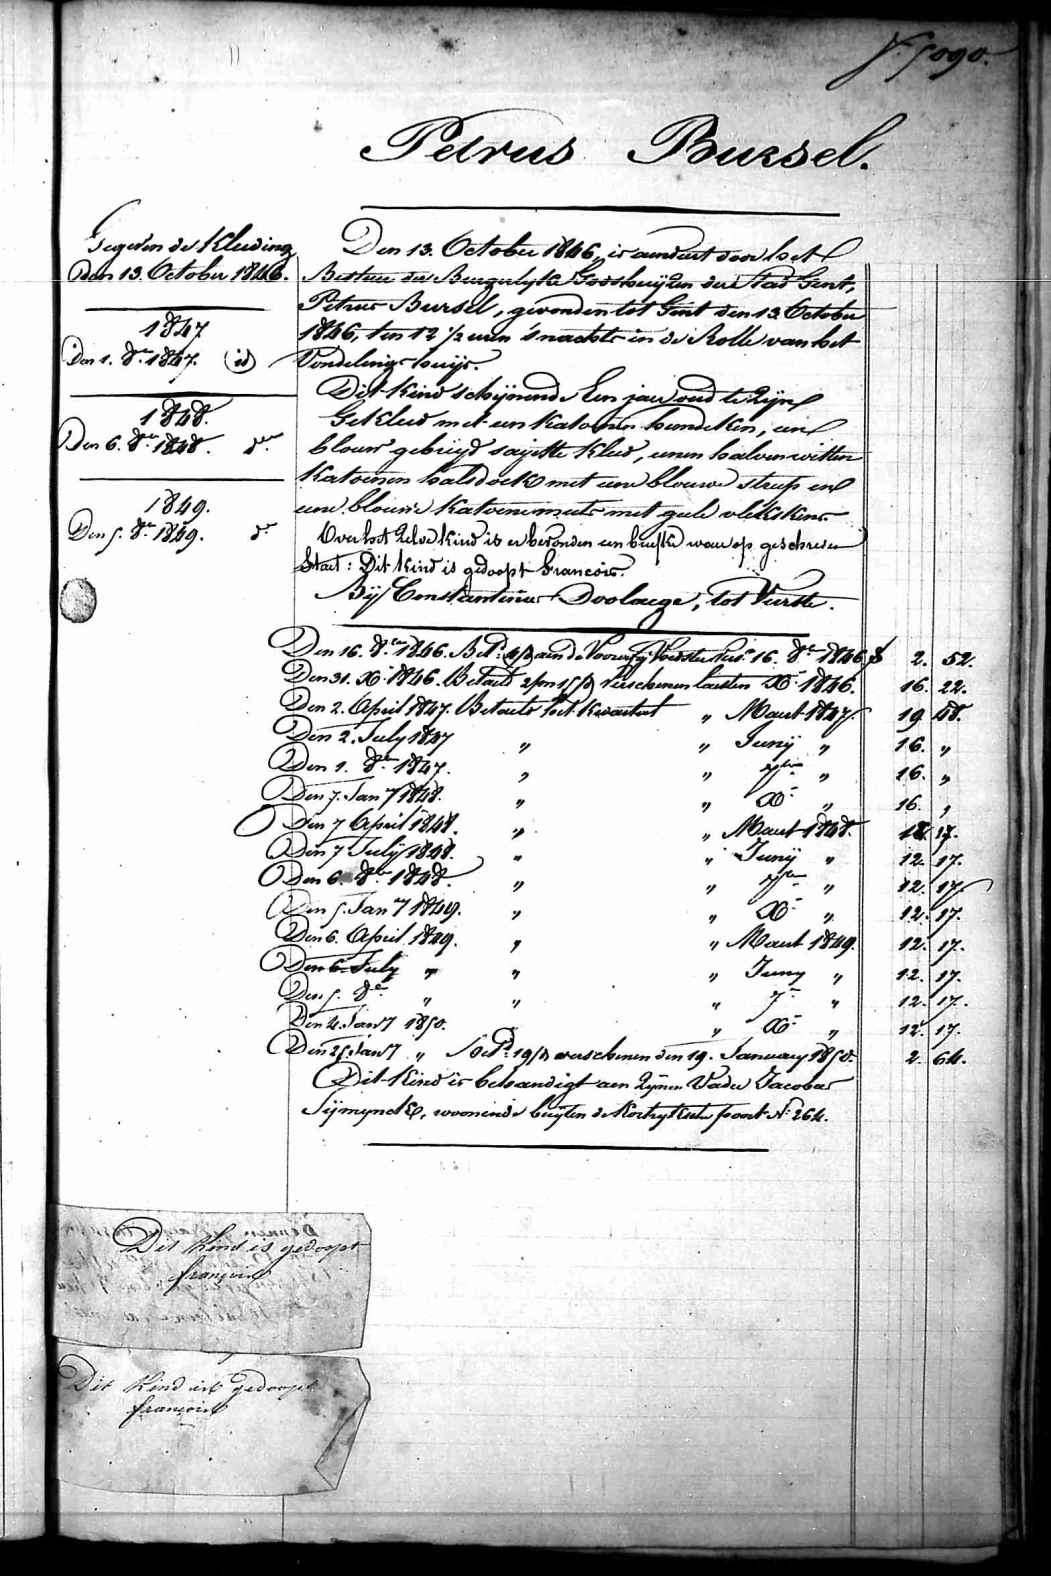 N.º 5090.
Petrus Bursel.
Gegeven de Kleeding
den 13. October 1846.
1847
Den 1. 8.er 1847. (id)
1848.
Den 6. 8.er 1848. d.o
1849.
Den 5. 8.er 1849. d.o
Den 13. October 1846, is aenveert door het
Bestier der Burgerlyke Godshuijzen der Stad Gent,
Petrus Bursel, gevonden tot Gent den 13. October
1846, ten 12 1/2 uren 's nachts in de Rolle van het
Vondelings huijs.
Dit kind schijnende Een jaer oud te Zijn
Gekleed met een katoenen hemdeken, een
blouw gebrijd sajette kleed, eenen halven witten
katoenen halsdoek met eene blouwe streep en
eene blouwe katoene muts met gele vlekskens.
Over het Zelve kind is er bevonden een briefke waer op geschreven
Staet: Dit kind is gedoopt Francois.
Bij Constantinus Doolaege, tot Vurste.
Den 16. 8.er 1846. Bet.d aen de Voorzorg Voedster 16. 8.er 1846 f 2. 52.
Den 31. Xb. 1846. Betaeld Verschenen laesten Xb. 1846. 16. 22.
Den 2. April 1847. Betaeld het Kwartael „ Maert 1847. 19 48.
Den 2. July 1847 „ „ Junij „ 16. „
Den 1. 8.br 1847. „ „ 7ber „ 16. „
Den 7. Jan.y 1848. „ „ Xb. „ 16. „
Den 7 April 1848. „ „ Maert 1848. 12 17.
Den 7 July 1848. „ „ Junij „ 12. 17.
Den 6. 8br 1848. „ „ 7ber „ 12. 17.
Den 5. Jan.y 1849. „ „ Xb. „ 12. 17.
Den 6. April 1849. „ „ Maert 1849. 12. 17.
Den 6 July „ „ „ Juny „ 12. 17.
Den 5. 8.er „ „ „ 7.er „ 12. 17.
Den 4. Jan.y 1850. „ Xb. „ 12. 17.
Den 25. Jan.y „ Bet.d 19/d verschenen den 19. January 1850. 2. 64.
Dit Kind is behandigt aen Zijnen Vader Jacobus
Sijmynck, woonende buijten de Kortrykse poort N.o 264.
Dit kind is gedoopt
françois
Dit kind is gedoopt
françois